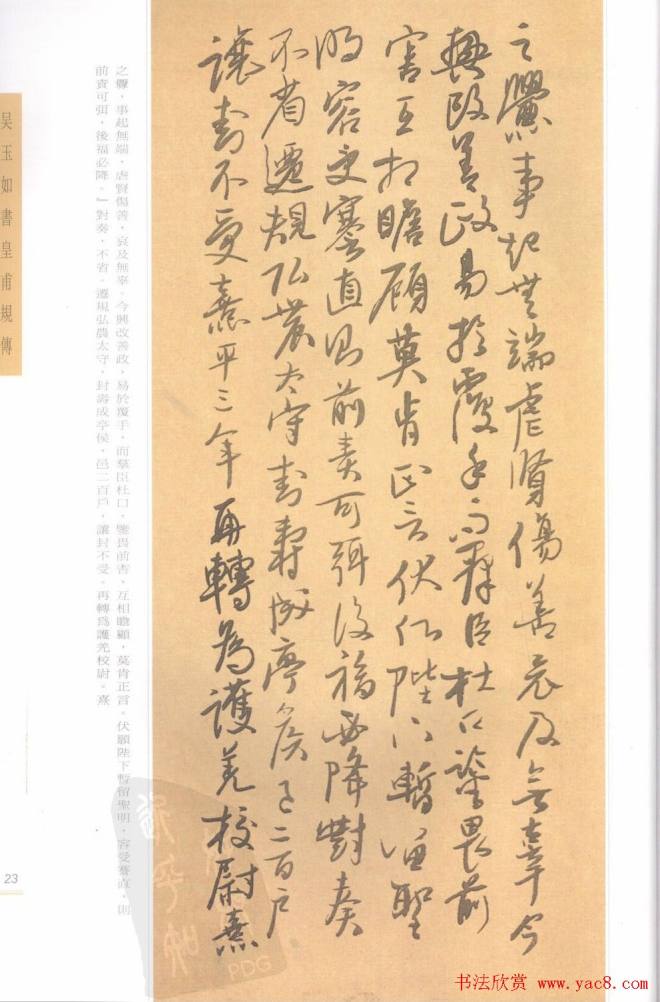 之釁事起無端虐賢傷善哀及無辜今
興改善政易於覆手而群臣杜口鑒畏前
害互相瞻顧莫肯正言伏願陛下暫留聖
明容受謇直則前責可弭後福必降對奏
不省遷規弘農太守封壽成亭侯邑二百户
讓封不受熹平三年再轉為護羌校尉熹
之釁，事起無端，虐賢傷善，哀及無辜。今興改善政，易於覆手，而羣臣杜口，鑒畏前害，互相瞻顧，莫肯正言。伏願陛下暫留聖明，容受謇直，則
前責可弭，後福必降。』對奏，不省。遷規弘農太守，封壽成亭侯，邑二百戶，讓封不受。再轉爲護羌校尉。熹
吴玉如書皇甫規傳
23
PDG
书法欣赏 www.yac8.com